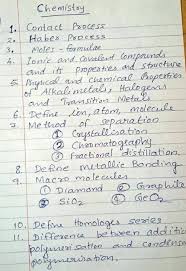 Chemistry
1. Contact Process
2. Haber Process
3. Moles - formulae
4. Ionic and Covalent Compounds
and it properties and structure
5. Physical and Chemical Properties
of Alkali metals, Halogens
and Transition Metals
6. Define ion, atom, molecule
7. Method of separation
① Crystallisation
② Chromatography
③ Fractional distillation
8. Define Metallic Bonding
9. Macro molecules
① Diamond ② Graphite
③ SiO2 ④ GeO2
10. Define Homologes series
11. Difference between additio
polymerisation and condens
polymerisation.